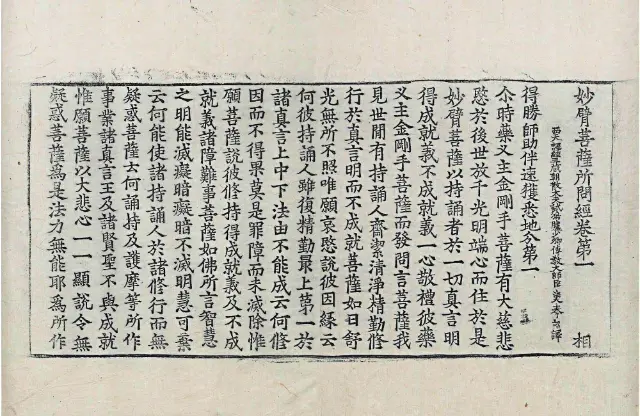 妙臂菩薩所問經卷第一 相
西天譯經三藏朝散大夫試鴻臚少卿傳教大師臣法天奉 詔譯
得勝師助伴速獲悉地分第一
尒時藥叉主金剛手菩薩有大慈悲
愍於後世放千光明端心而住於是
妙臂菩薩以持誦者於一切真言明
得成就義不成就義一心敬禮彼藥
叉主金剛手菩薩而發問言菩薩我
見世間有持誦人齋潔清淨精勤修
行於真言明而不成就菩薩如日舒
光無所不照唯願哀愍說彼因緣云
何彼持誦人雖復精勤最上第一於
諸真言上中下法由不能成云何修
因而不得果莫是罪障而未滅除惟
願菩薩說彼修持得成就義及不成
就義諸障難事菩薩如佛所言智慧
之明能滅癡暗癡暗不滅明慧可棄
云何能使諸持誦人於諸修行而無
疑惑菩薩云何誦持及護摩等所作
事業諸真言王及諸賢聖不與成就
惟願菩薩以大悲心一一顯說令無
疑惑菩薩爲是法力無能耶爲所作